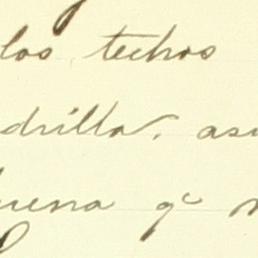 los techos
drilla. as
uena q